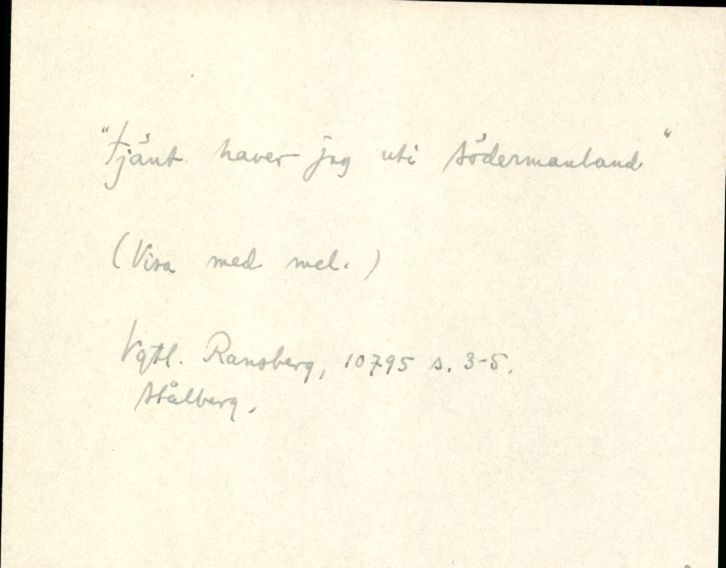 "Tjänt haver jag uti Södermanland"
(Visa med mel.)
Vgtl. Ransberg, 10795 s. 3-5.
Stålberg.